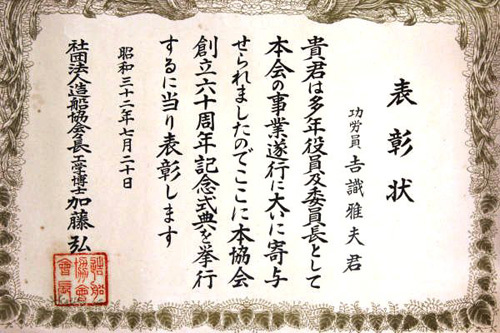 表彰状
功労員 吉識雅夫君
貴君は多年役員及委員長として
本会の事業遂行に大いに寄与
せられましたのでここに本協会
創立六十周年記念式典を挙行
するに当り表彰します
昭和三十二年七月二十日
社団法人造船協会長 工学博士 加藤弘
造船
協会
会長